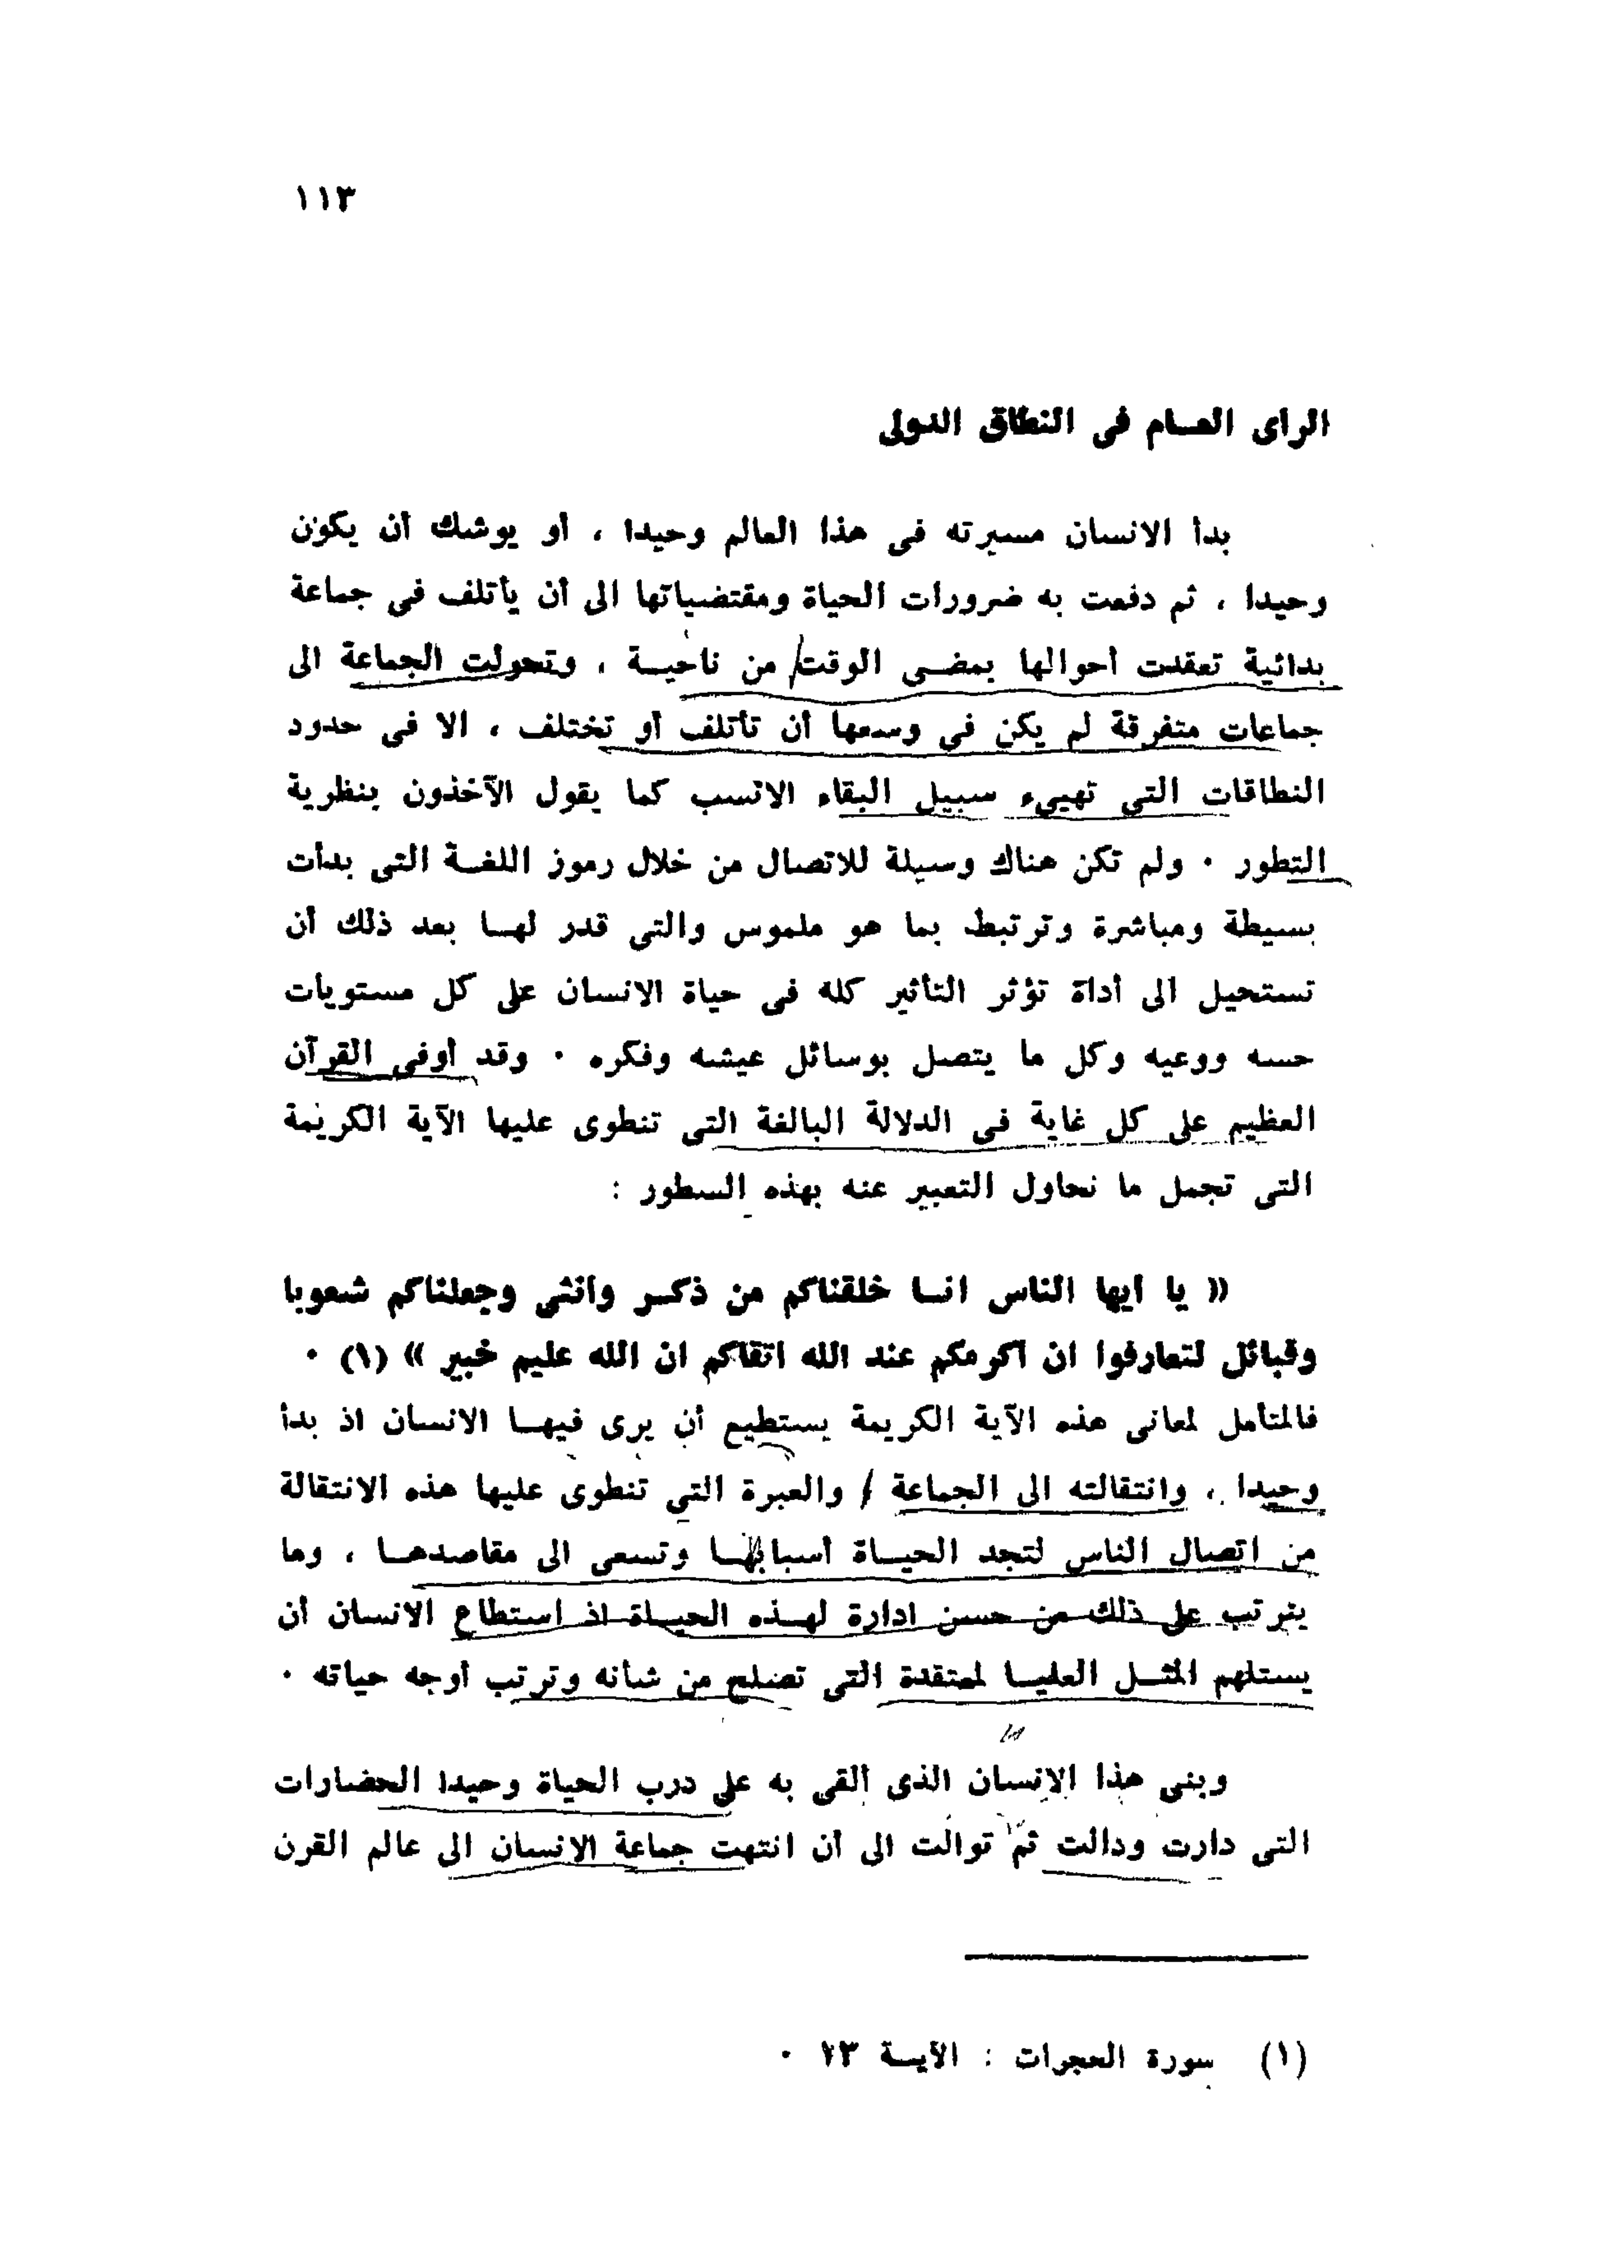 ١١٣
الرأى العام فى النطاق الدولى
بدأ الانسان مسيرته فى هذا العالم وحيدا ، أو يوشك أن يكون
وحيدا ، ثم دفعت به ضرورات الحياة ومقتضياتها الى أن يأتلف فى جماعة
بدائية تعقدت أحوالها بمضى الوقت من ناحية ، وتحولت الجماعة الى
جماعات متفرقة لم يكن فى وسعها أن تأتلف أو تختلف ، الا فى حدود
النطاقات التى تهيىء سبيل البقاء الانسب كما يقول الآخذون بنظرية
التطور ٠ ولم تكن هناك وسيلة للاتصال من خلال رموز اللغة التى بدأت
بسيطة ومباشرة وترتبط بما هو ملموس والتى قدر لها بعد ذلك أن
تستحيل الى أداة تؤثر التأثير كله فى حياة الانسان على كل مستويات
حسه ووعيه وكل ما يتصل بوسائل عيشه وفكره ٠ وقد أوفى القرآن
العظيم على كل غاية فى الدلالة البالغة التى تنطوى عليها الآية الكريمة
التى تجمل ما نحاول التعبير عنه بهذه السطور :
« يا أيها الناس انا خلقناكم من ذكر وأنثى وجعلناكم شعوبا
وقبائل لتعارفوا ان أكرمكم عند الله اتقاكم ان الله عليم خبير » (١) ٠
فالمتأمل لمعانى هذه الآية الكريمة يستطيع أن يرى فيها الانسان اذ بدأ
وحيدا ، وانتقالته الى الجماعة / والعبرة التى تنطوى عليها هذه الانتقالة
من اتصال الناس لتجد الحياة أسبابها وتسعى الى مقاصدها ، وما
يترتب على ذلك من حسن ادارة لهذه الحياة اذ استطاع الانسان أن
يستلهم المثل العليا لمعتقدة التى تصلح من شأنه وترتب أوجه حياته ٠
وبنى هذا الانسان الذى ألقى به على درب الحياة وحيدا الحضارات
التى دارت ودالت ثم توالت الى أن انتهت جماعة الانسان الى عالم القرن
(١) سورة الحجرات : الآية ١٣ ٠